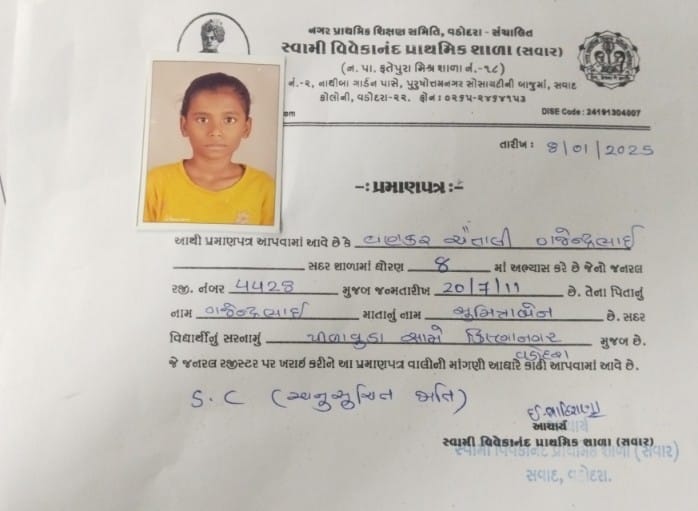 નગર પ્રાથમિક શિક્ષણ સમિતિ, વડોદરા - સંચાલિત
સ્વામી વિવેકાનંદ પ્રાથમિક શાળા (સવાર)
(ન. પા. ફતેપુરા મિશ્ર શાળા નં.-૧૮)
નં.-૨, નાથીબા ગાર્ડન પાસે, પુરુષોત્તમનગર સોસાયટીની બાજુમાં, સવાદ
કોલોની, વડોદરા-૨૨. ફોન : ૦૨૬૫-૨૪૬૪૧૫૩
om DISE Code : 24191304607
તારીખ : 8/01/2025
-: પ્રમાણપત્ર :-
આથી પ્રમાણપત્ર આપવામાં આવે છે કે વણકર ચૈતાલી ગજેન્દ્રભાઈ
સદર શાળામાં ધોરણ 8 માં અભ્યાસ કરે છે જેનો જનરલ
રજી. નંબર 4428 મુજબ જન્મતારીખ 20/7/11 છે. તેના પિતાનું
નામ ગજેન્દ્રભાઈ માતાનું નામ ભૂમિતાબેન છે. સદર
વિદ્યાર્થીનું સરનામું પીળાવુડા સામે કિશનનગર મુજબ છે.
વડોદરા
જે જનરલ રજીસ્ટર પર ખરાઇ કરીને આ પ્રમાણપત્ર વાલીની માંગણી આધારે કાઢી આપવામાં આવે છે.
S.C (અનુસૂચિત જાતિ)
આચાર્ય
સ્વામી વિવેકાનંદ પ્રાથમિક શાળા (સવાર)
સ્વામી વિવેકાનંદ પ્રાથમિક શાળા (સવાર)
સવાદ, વડોદરા.